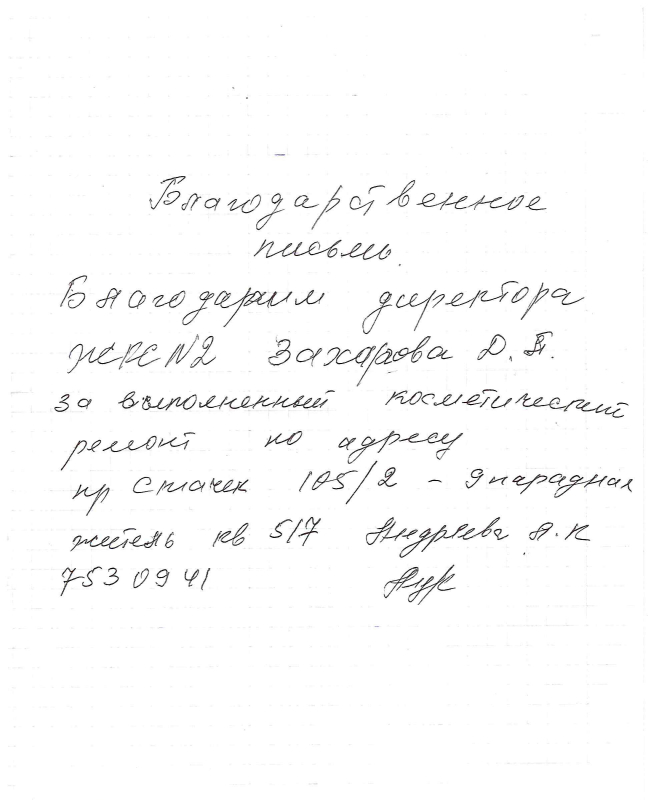 Благодарственное
письмо.
Благодарим директора
ЖКС N2 Захарова Д.П.
за выполненный косметический
ремонт по адресу
пр Стачек 105/2 - 9 парадная
житель кв 517 Андреева А.К
753 09 41